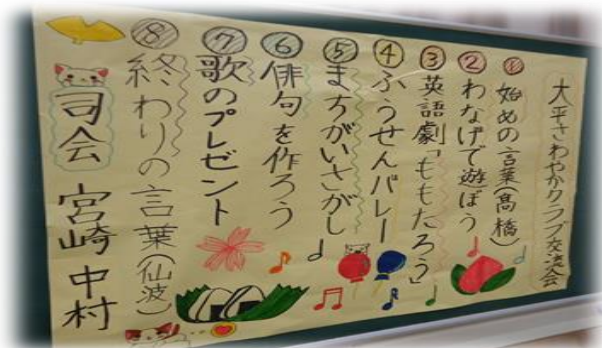 大平さわやかクラブ交流会
① 始めの言葉(髙橋)
② わなげで遊ぼう
③ 英語劇「ももたろう」
④ ふうせんバレー
⑤ まちがいさがし
⑥ 俳句を作ろう
⑦ 歌のプレゼント
⑧ 終わりの言葉(仙波)
司会 宮崎 中村